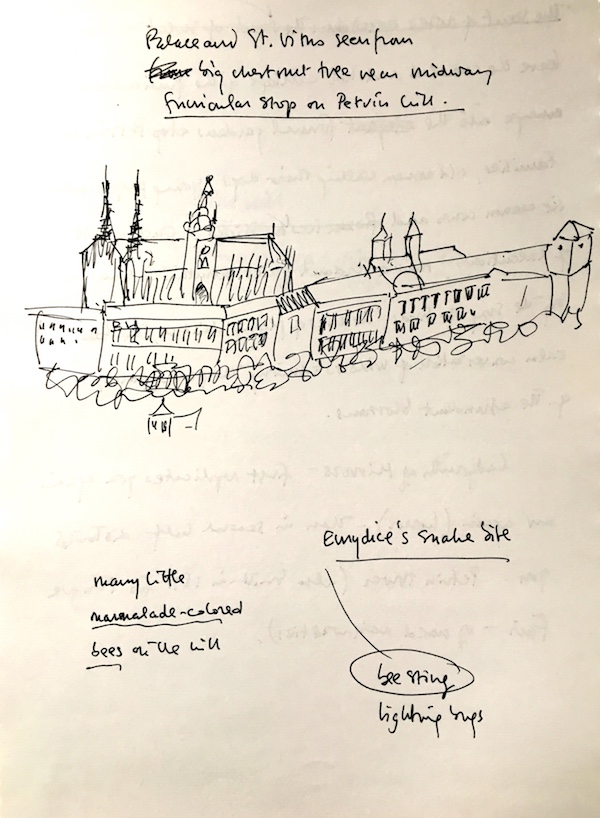 Palace and St. Vitus seen from
big chestnut tree near midway
funicular stop on Petrin hill.
Eurydice's snake bite
many little
marmalade-colored
bees on the hill
bee sting
lightning bugs